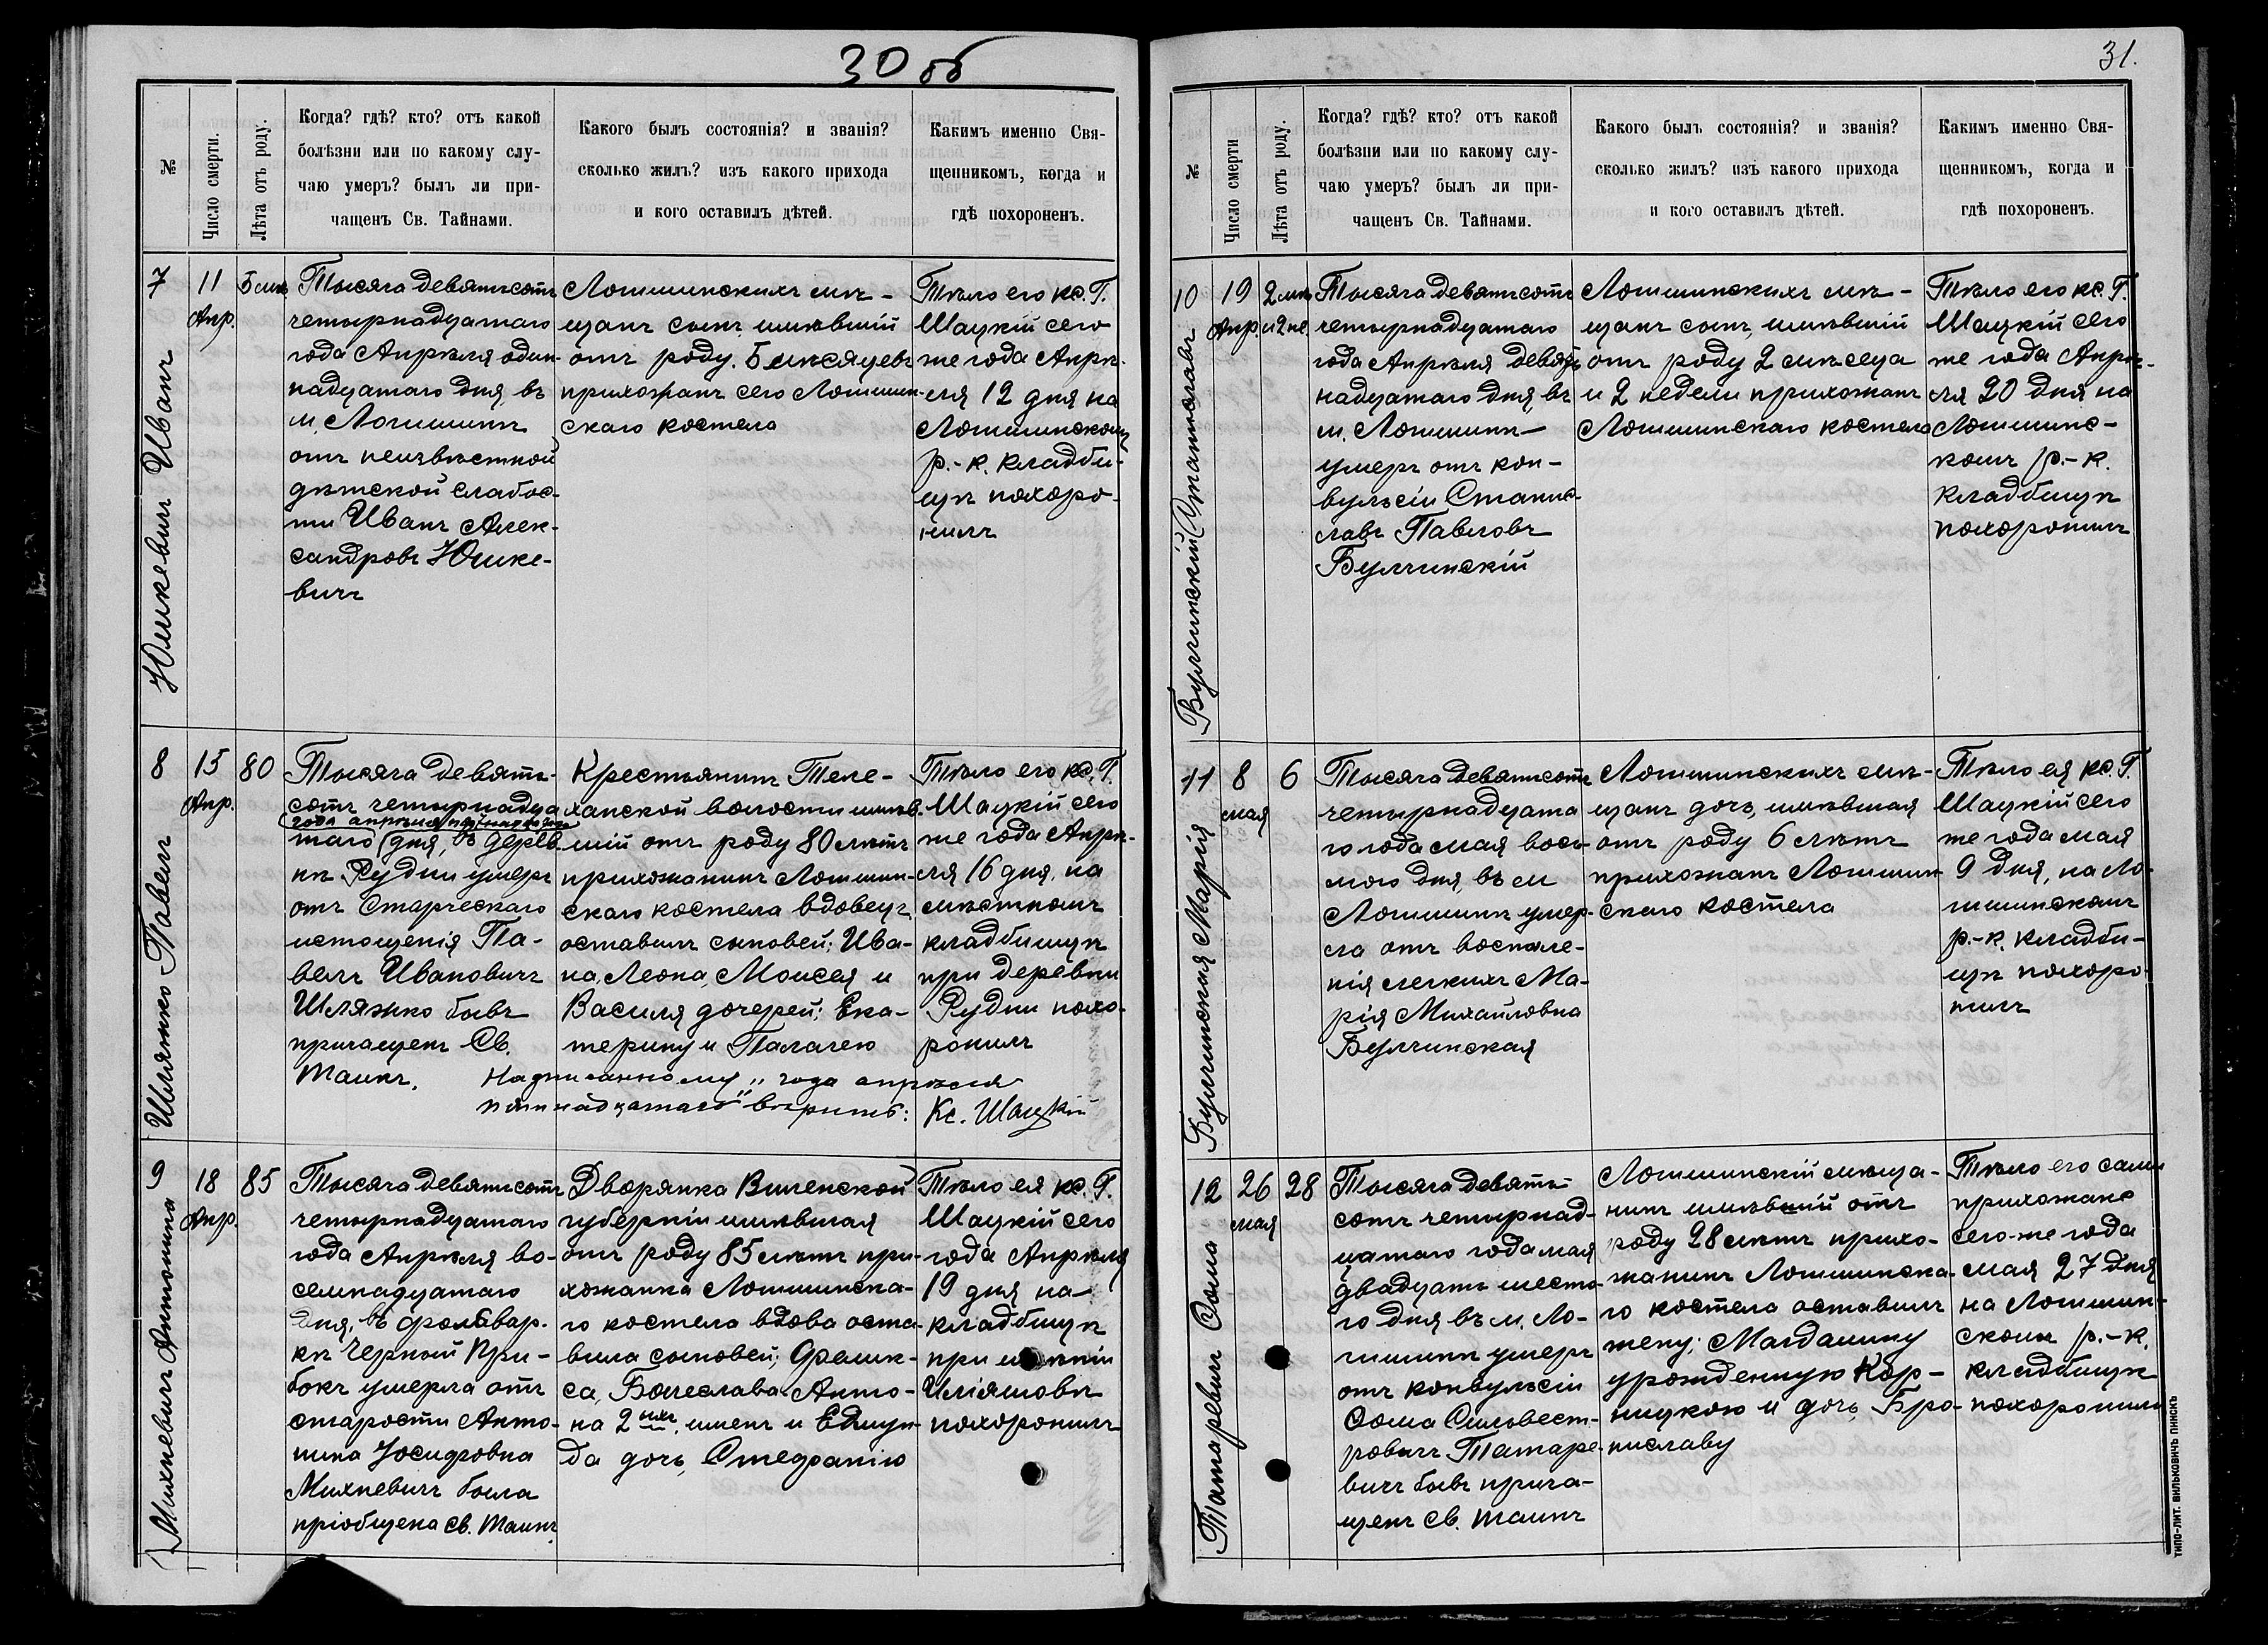 30 об
№
Число смерти.
Лѣта отъ роду.
Когда? гдѣ? кто? отъ какой
болѣзни или по какому слу-
чаю умеръ? былъ ли при-
чащенъ Св. Тайнами.
Какого былъ состоянія? и званія?
сколько жилъ? изъ какого прихода
и кого оставилъ дѣтей.
Какимъ именно Свя-
щенникомъ, когда и
гдѣ похороненъ.
7
Юшкевичъ Иванъ
11
Апр.
5 мѣс
Тысяча девятьсотъ
четырнадцатаго
года Апрѣля один-
надцатаго дня, въ
м. Логишинѣ
отъ неизвѣстной
дѣтской слабос-
ти Иванъ Алек-
сандровъ Юшке-
вичъ
Логишинскихъ мѣ-
щанъ сынъ имѣвшій
отъ роду 5 мѣсяцевъ
прихожанъ сего Логишин-
скаго костела
Тѣло его кс. Г.
Шацкій сего
же года Апрѣ-
ля 12 дня на
Логишинскомъ
р.-к. кладби-
щѣ похоро-
нилъ
8
Шляжко Павелъ
15
Апр.
80
Тысяча девять-
сотъ четырнадца
года апрѣля пятнадцатаго
таго дня, въ дерев.
нѣ Рудни умеръ
отъ Старческаго
истощенія Па-
велъ Ивановичъ
Шляжко бывъ
причащенъ Св.
Таинъ.
Крестьянинъ Теле-
ханской волости имѣв-
шій отъ роду 80 лѣтъ
прихожанинъ Логишин-
скаго костела вдовецъ
оставилъ сыновей: Ива-
на, Леона, Моисея и
Василя дочерей: Ека-
терину и Палагею
Тѣло его кс. Г.
Шацкій сего
же года Апрѣ-
ля 16 дня, на
мѣстномъ
кладбищѣ
при деревни
Рудни похо-
ронилъ
Надписанному „года апрѣля
пятнадцатаго“ вѣрить: Кс. Шацкій
9
Михневичъ Антонина
18
Апр.
85
Тысяча девятьсотъ
четырнадцатаго
года Апрѣля во-
семнадцатаго
дня, въ фольвар.
кѣ Черный При-
бокъ умерла отъ
старости Анто-
нина Юсифовна
Михневичъ была
пріобщена Св. Таинъ
Дворянка Виленской
губерніи имѣвшая
отъ роду 85 лѣтъ при-
хожанка Логишинска-
го костела вдова оста-
вила сыновей: Феликс-
са, Болеслава-Анто-
на 2 ихъ именъ и Едмун-
да дочь, Стефанію
Тѣло ея кс. Г.
Шацкій сего
года Апрѣля
19 дня на
кладбищѣ
при имѣніи
похоронилъ
31.
№
Число смерти
Лѣта отъ роду.
Когда? гдѣ? кто? отъ какой
болѣзни или по какому слу-
чаю умеръ? былъ ли при-
чащенъ Св. Тайнами.
Какого былъ состоянія? и званія?
сколько жилъ? изъ какого прихода
и кого оставилъ дѣтей.
Какимъ именно Свя-
щенникомъ, когда и
гдѣ похороненъ.
10
Булчинскій Станиславъ
19
Апр.
2 мѣс
и 2 не.
Тысяча девятьсотъ
четырнадцатаго
года Апрѣля девят-
надцатаго дня, въ
м. Логишинѣ
умеръ отъ кон-
вульсіи Станис-
лавъ Павловъ
Булчинскій
Логишинскихъ мѣ-
щанъ сынъ, имѣвшій
отъ роду 2 мѣсеца
и 2 недели прихожанъ
Логишинскаго костела
Тѣло его кс. Г.
Шацкій сего
же года Апрѣ-
ля 20 дня на
Логишинс-
комъ р.-к.
кладбищѣ
похоронилъ
11
Булчинская Марія
8
мая
6
Тысяча девятьсотъ
четырнадцата
го года мая вось-
мого дня, въ м
Логишинѣ умер-
ла отъ воспале-
нія легкихъ Ма-
рія Михайловна
Булчинская
Логишинскихъ мѣ-
щанъ дочь, имѣвшая
отъ роду 6 лѣтъ
прихожанъ Логишин-
скаго костела
Тѣло ея кс. Г.
Шацкій сего
же года мая
9 дня, на Ло-
гишинскомъ
р.-к. кладби-
щѣ похоро-
нилъ
12
Татаревичъ Фома
26
мая
28
Тысяча девять-
сотъ четырнад-
цатаго года мая
двадцать шесто-
го дня въ м. Ло-
гишинѣ умеръ
отъ конвульсіи
Фома Сильвест-
ровичъ Татаре-
вичъ бывъ прича-
щенъ Св. Таинъ
Логишинскій мѣща-
нинъ имѣвшій отъ
роду 28 лѣтъ прихо-
жанинъ Логишинска-
го костела оставилъ
жену: Магдалину
урожденную Кор-
ницкою и дочь, Бро-
ниславу
Тѣло его сами
прихожане
сего-же года
мая 27 дня
на Логишин-
скомъ р.-к.
кладбищѣ
похоронили
ТИПО-ЛИТ. ВИЛЬКОВИЧЪ ПИНСКЪ